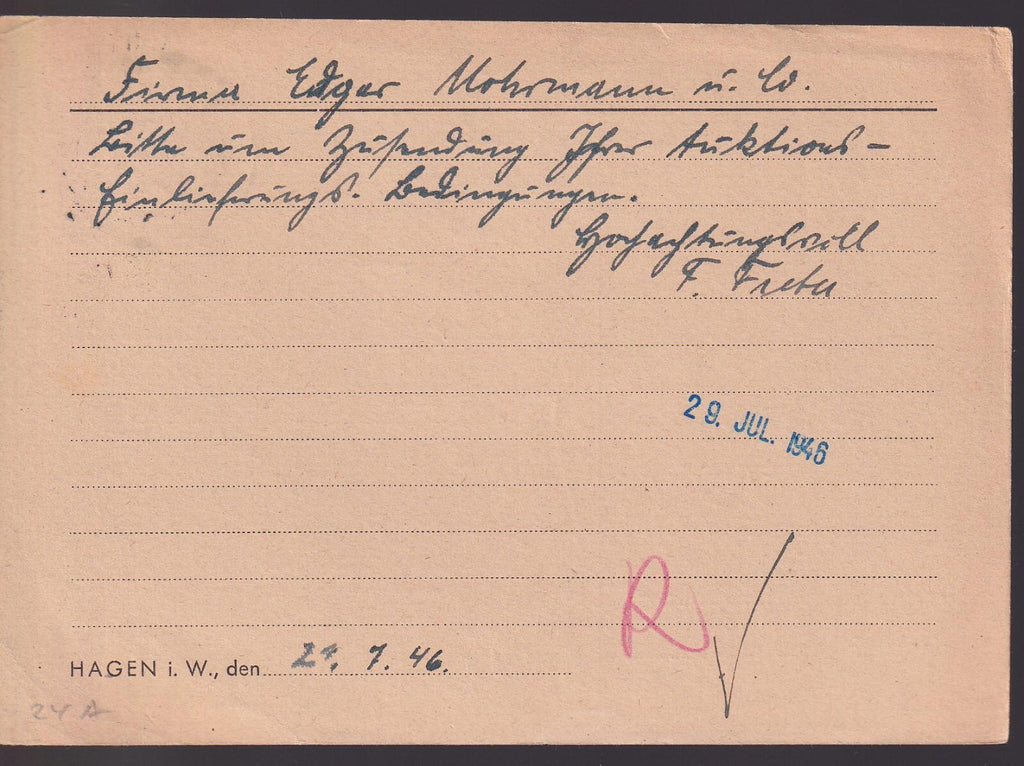 Firma Edgar Mohrmann u. Co.
Bitte um Zusendung Ihrer Auktions-
Einlieferungs-Bedingungen.
Hochachtungsvoll
F.
29. JUL. 1946
R
HAGEN i. W., den 7. 46.
24 A